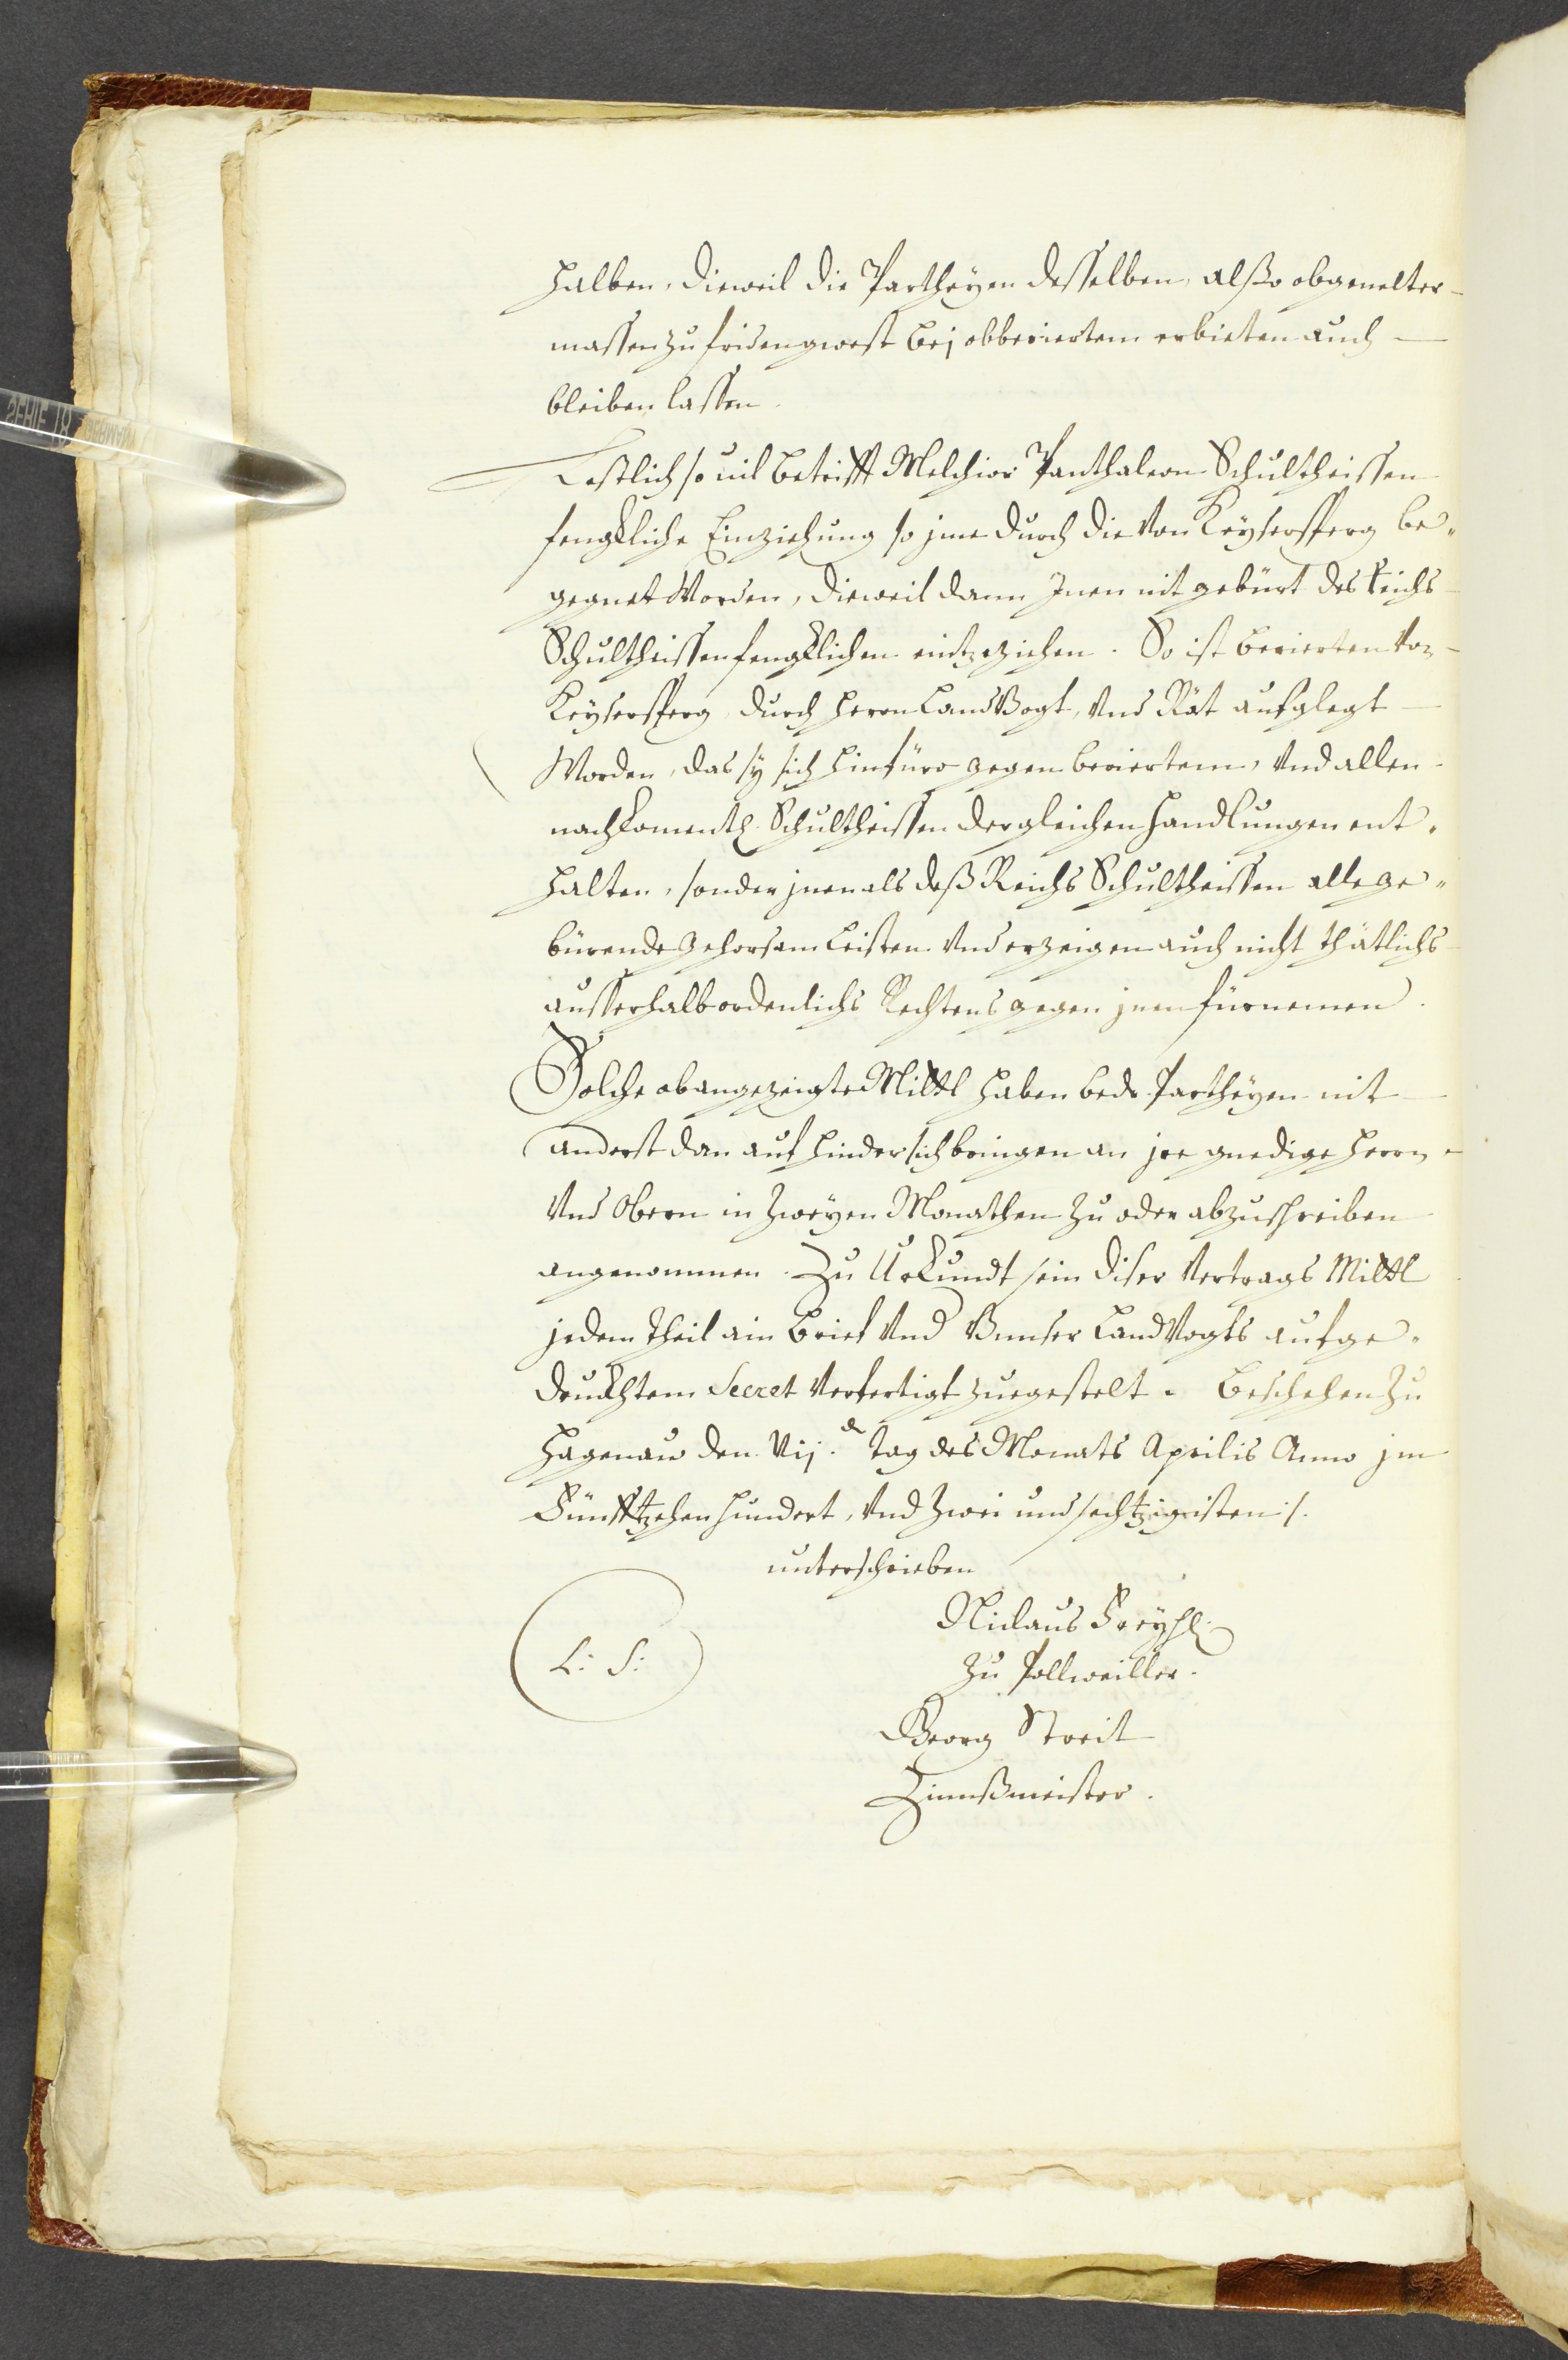 halben, dieweil die Partheyen desselben, also obgemelter
massen zufriden gwest bej obberiertem erbieten auch
bleiben lassen.
Lestlich so uil betrifft Melchior Panthaleon Schultheissen
fengkliche Einziehung so jme durch die von Keysersperg be„
gegnet Worden, dieweil dann Inen nit gebürt des Reichs
Schultheissen fengklichen eintzeziehen. So ist berierten von
Keysersperg durch Herrn LandVogt, vnd Rät aufglegt
Worden, das sy sich hinfüro gegen beriertem, vnd allen
nachkomenten Schultheissen dergleichen Handlungen ent„
halten, sonder jnen als deß Reichs Schultheissen alle ge„
bürende gehorsam Leisten vnd erzeigen auch nicht thätlichs
ausserhalb ordenlichs Rechtens gegen jnen fürnemen.
Solche obangezeigte Mittl haben bede Partheyen nit
anderst dan auf hindersichbringen an jre gnedige Herrn
vnd Obern in zweyen Monathen zu oder abzuschreiben
angenommen. Zu Urkundt sein diser Vertrags Mittl
jedem Theil ain brief vnd Vnnser LandVogts aufge„
druckhtem Secret verfertigt zuegestelt. Beschehen zu
Hagenaw den Vij. tag des Monats Aprilis Anno jm
Fünfftzehenhundert, vnd zwei und sechtzigisten :/.
unterschrieben
Niclaus Freyh:
zu Pollweiller.
L: S:
Georg Streit
Zinnßmeister.